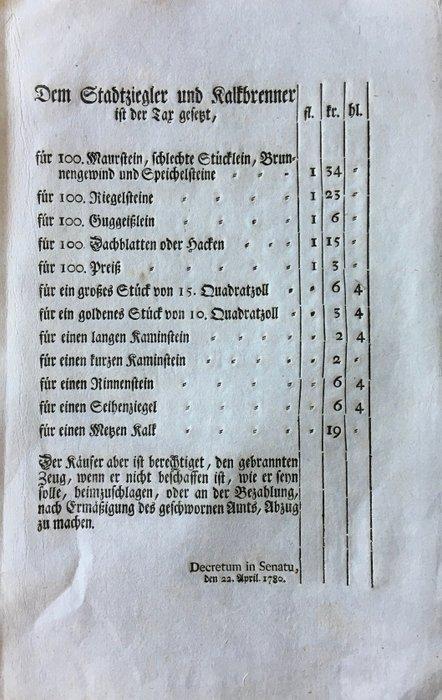 Dem Stadtziegler und Kalkbrenner
ist der Tax gesetzt, fl. kr. hl.
für 100. Maurstein, schlechte Stücklein, Brun-
nengewind und Speichelsteine - - - 1 34 -
für 100. Riegelsteine - - - - 1 23 -
für 100. Guggeißlein - - - - 1 6 -
für 100. Dachblatten oder Hacken - - - 1 15 -
für 100. Preiß - - - - - 1 3 -
für ein großes Stück von 15. Quadratzoll - - 6 4
für ein goldenes Stück von 10. Quadratzoll - - 3 4
für einen langen Kaminstein - - - - - 2 4
für einen kurzen Kaminstein - - - - - 2 -
für einen Rinnenstein - - - - - 6 4
für einen Seihenziegel - - - - - 6 4
für einen Metzen Kalk - - - - - 19 -
Der Käufer aber ist berechtiget, den gebrannten
Zeug, wenn er nicht beschaffen ist, wie er seyn
solle, heimzuschlagen, oder an der Bezahlung,
nach Ermäßigung des geschwornen Amts, Abzug
zu machen.
Decretum in Senatu,
den 22. April. 1780.